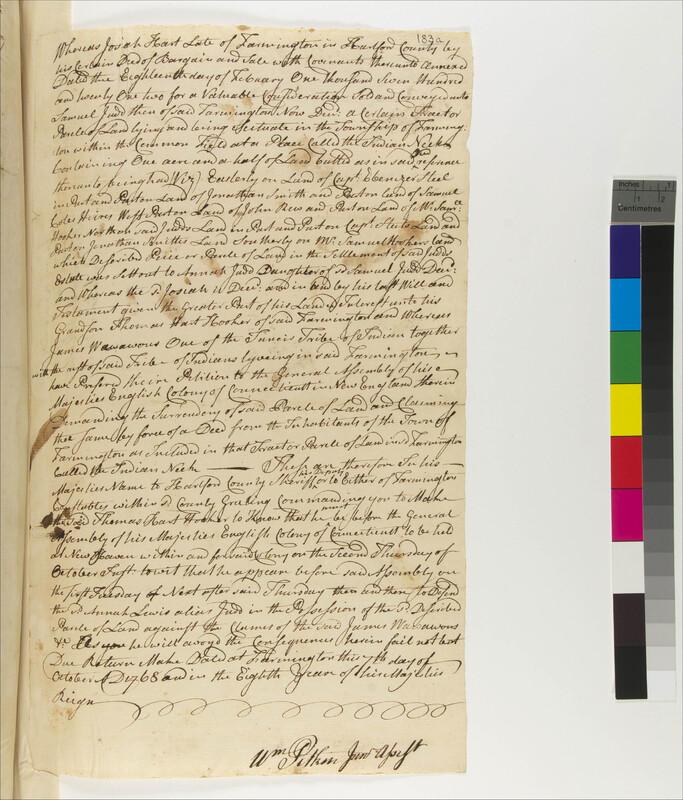 183a
Whereas Josiah Hart Late of Farmington in Hartford County by
his Certain Deed of Bargain and Sale with Covenants thereunto Annexed
Dated the Eighteenth day of Febuary One Thousand Seven Hundred
and twenty One two for a Valuable Consideration Sold and Conveyed unto
Samuel Judd then of said Farmington Now Decd: a Certain Tract or
Parcle of Land lying and being Scituate in the Township of Farming-
ton within the Common Field at a Place Called the Indian Neck
Containing One acre and a half of Land butted as in said
thereunto being had (Viz) Easterly on Land of Capt Ebenezer Steel
in Part and Part on Land of Jonathan Smith and Part on Land of Samuel
Coles Heires West Part on Land of John Rew and Part on Land of Mr. Saml
Hooker North on said Judds Land in Part and Part on Capt Steels Land and
Part on Jonathan Smiths Land Southerly on Mr. Samuel Hookers land
which Described Peice or Parcle of Land in the Settlement of said Judds
Estate was Set out to Annah Judd Daughter of sd Samuel Judd Decd:
and Whereas the sd Josiah is Decd: and in and by his last Will and
Testament given the Greater Part of his Land & Interest unto his
Grandson Thomas Hart Hooker of said Farmington and Whereas
James Wawawous One of the Tunxis Tribe of Indian together
with the rest of said Tribe of Indians lyveing in said Farmington
have Prefered their Petition to the General Assembly of his
Majesties English Colony of Connecticutt in New England therein
Demanding the Surrendry of said Parcle of Land and Claiming
the same by force of a Deed from the Inhabitants of the Town of
Farmington as Included in that Tract or Parcle of Land in sd Farmington
Called the Indian Neck — These are therefore In his
Majesties Name to Hartford County Sheriff or his Deputy or to Either of Farmington
Constables within sd County Greeting Commanding you to Make
the said Thomas Hart Hooker to Know that he must be before the General
Assembly of his Majesties English Colony of Connecticutt to be held
at New Haven within and for said Colony on the Second Thursday of
October Inst. to wit that he appear before said Assembly on
the first Tuesday of Next after said Thursday then and there to Defend
the sd Annah Lewis alias Judd in the Possession of the sd Described
Parcle of Land against the Claimes of the said James Wawawous
&c. As you he will avoyd the Consequences herein fail not but
Due Return Make Dated at Farmington this 7th day of
October AD 1768 and in the Eighth Year of his Majesties
Reign
Wm Pitkin Junr Assist
Inches
1
2
Centimetres